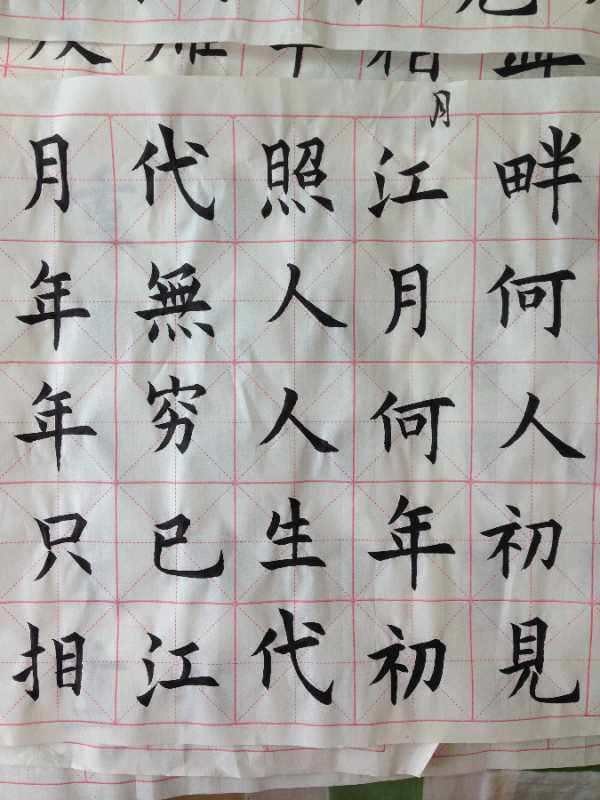 畔何人初見
月江月何年初
照人人生代
代無穷已江
月年年只相